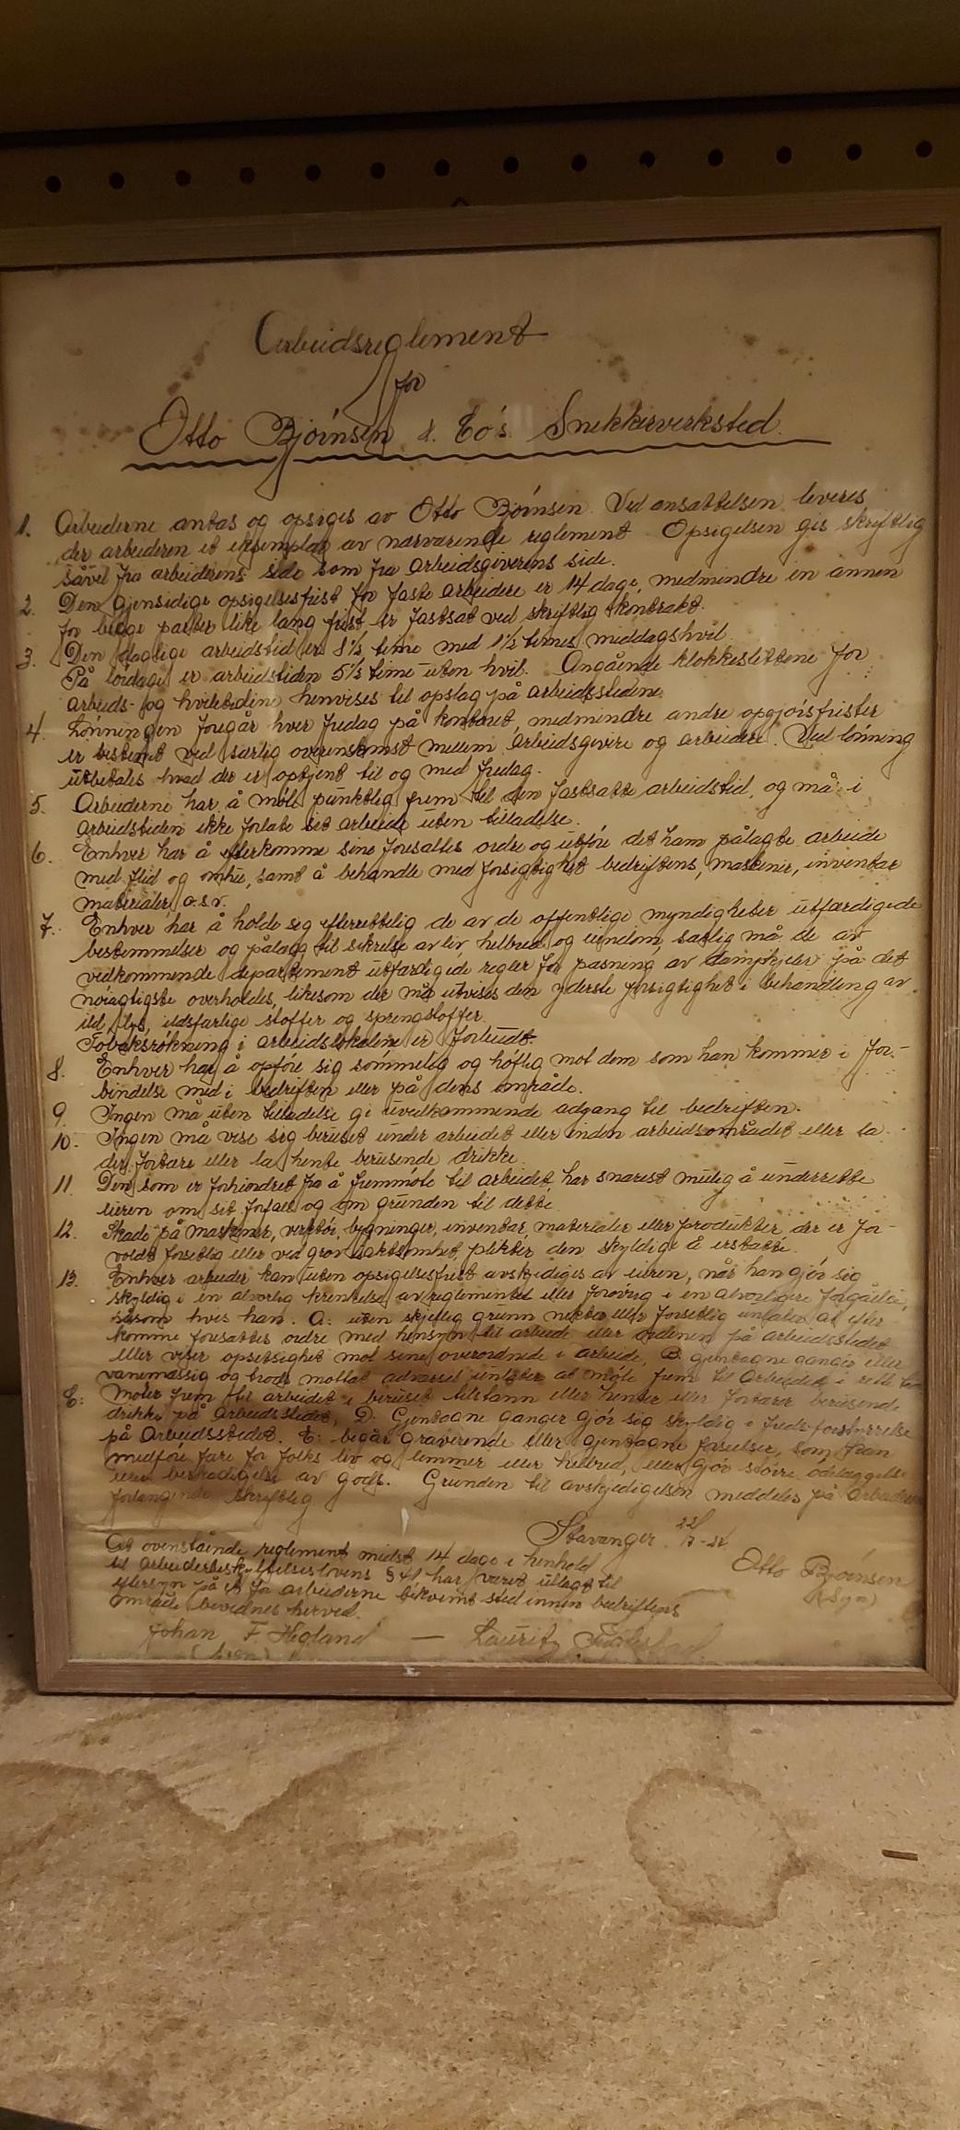 Arbeidsreglement
for
Otto Bjørnsen & Co's Snekkerverksted.
1. Arbeiderne antas og opsiges av Otto Bjørnsen. Ved ansættelsen leveres
der arbeideren et exemplar av nærværende reglement. Opsigelsen gis skriftlig
såvel fra arbeiderens side som fra arbeidsgiverens side.
2. Den gjensidige opsigelsesfrist for faste arbeidere er 14 dage, medmindre en annen
for begge parter like lang frist er fastsat ved skriftlig kontrakt.
3. Den daglige arbeidstid er 8½ time med 1½ times middagshvil.
På lørdage er arbeidstiden 5½ time uten hvil. Angående klokkeslettene for
arbeids- og hviletidene henvises til opslag på arbeidsstedene.
4. Lønningen foregår hver fredag på kontoret, medmindre andre opgjørsfrister
er bestemt ved særlig overenskomst mellem arbeidsgivere og arbeidere. Ved lønning
utbetales hvad der er optjent til og med fredag.
5. Arbeiderne har å møte punktlig frem til den fastsatte arbeidstid, og må i
arbeidstiden ikke forlate sit arbeide uten tilladelse.
6. Enhver har å efterkomme sine foresattes ordre og utføre det ham pålagte arbeide
med flid og omhu, samt å behandle med forsigtighet bedriftens maskiner, inventar
materialer o.s.v.
7. Enhver har å holde sig efterrettelig de av de offentlige myndigheter utfærdigede
bestemmelser og pålæg til sikrelse av liv helbred og eiendom, særlig må de av
vedkommende departement utfærdigede regler for pasning av dampkjeler på det
nøiagtigste overholdes, likesom der må utvises den yderste forsigtighet i behandling av
ild, lys, ildsfarlige stoffer og sprengstoffer.
Tobaksrøkning i arbeidslokalene er forbudt.
8. Enhver har å opføre sig sømmelig og høflig mot dem som han kommer i for-
bindelse med i bedriften eller på dens område.
9. Ingen må uten tilladelse gi uvedkommende adgang til bedriften.
10. Ingen må vise sig beruset under arbeidet eller inden arbeidsområdet eller la
der fortære eller la hente berusende drikke.
11. Den som er forhindret fra å fremmøte til arbeidet, har snarest mulig å underrette
eieren om sit forfald og om grunden til dette.
12. Skade på maskiner, verktøi, bygninger, inventar, materialer eller produkter, der er for-
voldt forsetlig eller ved grov uaktsomhet, plikter den skyldige å erstatte.
13. Enhver arbeider kan uten opsigelsesfrist avskjediges av eieren, når han gjør sig
skyldig i en alvorlig krenkelse av reglementet eller forøvrig i en alvorligere forgåelse,
såsom hvis han. A: uten skjellig grunn nekter eller forsetlig unlater at efter-
komme foresattes ordre med hensyn til arbeide eller ordenen på arbeidsstedet
eller viser opsetsighet mot sine overordnede i arbeide, B: gjentagne ganger eller
vanemæssig og trods mottat advarsel unlater at møte frem til Arbeidet i rett tid
C: Møter frem til arbeidet i beruset tilstann eller henter eller fortærer berusende
drikke på Arbeidsstedet, D: Gjentagne ganger gjør sig skyldig i freds-forstyrrelse
på Arbeidsstedet. E: begår graverende eller gjentagne forseelser, som kan
medføre fare for folks liv og lemmer eller helbred, eller gjør større ødelæggelse
eller beskadigelse av gods. Grunden til avskjedigelsen meddeles på Arbeiderens
forlangende skriftlig
Stavanger
At ovenstående reglement mindst 14 dage i henhold
til arbeiderbeskyttelseslovens § 41 har været utlagt til
eftersyn på et for arbeiderne bekvemt sted innen bedriftens
område bevidnes herved.
Otto Bjørnsen
(Sign)
Johan F. Hegland — Lauritz
(Sign)